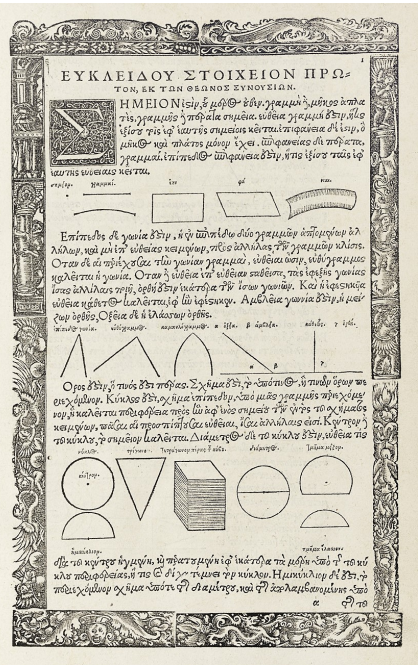 1
ΕΥΚΛΕΙΔΟΥ ΣΤΟΙΧΕΙΟΝ ΠΡΩ-
ΤΟΝ, ΕΚ ΤΩΝ ΘΕΩΝΟΣ ΣΥΝΟΥΣΙΩΝ.
ΣΗΜΕΙΟΝ ἐστιν, οὗ μέρος οὐδέν. γραμμὴ δὲ, μῆκος ἀπλα
τές. γραμμῆς δὲ πέρατα σημεῖα. εὐθεῖα γραμμή ἐστιν, ἥτις
ἐξίσου τοῖς ἐφ' ἑαυτῆς σημείοις κεῖται. ἐπιφάνεια δέ ἐστιν, ὃ
μῆκος καὶ πλάτος μόνον ἔχει. ἐπιφανείας δὲ πέρατα,
γραμμαί. ἐπίπεδος ἐπιφάνειά ἐστιν, ἥτις ἐξίσου ταῖς ἐφ'
ἑαυτῆς εὐθείαις κεῖται.
σημεῖον. γραμμαί.
Ἐπίπεδος δὲ γωνία ἐστὶν, ἡ ἐν ἐπιπέδῳ δύο γραμμῶν ἁπτομένων ἀλ
λήλων, καὶ μὴ ἐπ' εὐθείας κειμένων, πρὸς ἀλλήλας τῶν γραμμῶν κλίσις.
Ὅταν δὲ αἱ περιέχουσαι τὴν γωνίαν γραμμαὶ, εὐθεῖαι ὦσιν, εὐθύγραμμος
καλεῖται ἡ γωνία. Ὅταν δὲ εὐθεῖα ἐπ' εὐθεῖαν σταθεῖσα, τὰς ἐφεξῆς γωνίας
ἴσας ἀλλήλαις ποιῇ, ὀρθή ἐστιν ἑκατέρα τῶν ἴσων γωνιῶν. Καὶ ἡ ἐφεστηκυῖα
εὐθεῖα κάθετος καλεῖται, ἐφ' ἣν ἐφέστηκεν. Ἀμβλεῖα γωνία ἐστὶν, ἡ μεί-
ζων ὀρθῆς. Ὀξεῖα δὲ ἡ ἐλάσσων ὀρθῆς.
α β γ
Ὅρος ἐστὶν, ὅ τινός ἐστι πέρας. Σχῆμά ἐστι, τὸ ὑπό τινος, ἤ τινων ὅρων πε
ριεχόμενον. Κύκλος ἐστὶ, σχῆμα ἐπίπεδον, ὑπὸ μιᾶς γραμμῆς περιεχόμε
νον, ἣ καλεῖται περιφέρεια, πρὸς ἣν ἀφ' ἑνὸς σημείου τῶν ἐντὸς τοῦ σχήματος
κειμένων, πᾶσαι αἱ προσπίπτουσαι εὐθεῖαι, ἴσαι ἀλλήλαις εἰσί. Κέντρον δὲ
τοῦ κύκλου, τὸ σημεῖον καλεῖται. Διάμετρος δὲ τοῦ κύκλου ἐστὶν, εὐθεῖά τις
κύκλος. τρίγωνον. διάμετρος. τμῆμα μεῖζον.
κέντρον.
ἡμικύκλιον. τμῆμα ἔλασσον.
διὰ τοῦ κέντρου ἠγμένη, καὶ περατουμένη ἐφ' ἑκάτερα τὰ μέρη ὑπὸ τῆς τοῦ κύ
κλου περιφερείας, ἥτις καὶ δίχα τέμνει τὸν κύκλον. Ἡμικύκλιον δέ ἐστι, τὸ
περιεχόμενον σχῆμα ὑπό τε τῆς διαμέτρου, καὶ τῆς ἀπολαμβανομένης ὑπὸ
α τῆς τοῦ